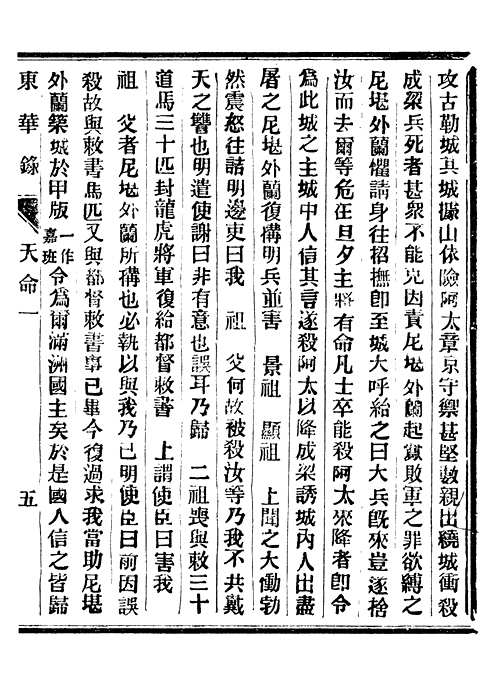 攻古勒城其城據山依險阿太章京守禦甚堅數親出繞城衝殺
成梁兵死者甚衆不能克因責尼堪外蘭起釁敗軍之罪欲縛之
尼堪外蘭懼請身往招撫卽至城大呼紿之曰大兵旣來豈遂捨
汝而去爾等危在旦夕主將有命凡士卒能殺阿太來降者卽令
爲此城之主城中人信其言遂殺阿太以降成梁誘城內人出盡
屠之尼堪外蘭復構明兵並害 景祖 顯祖 上聞之大慟勃
然震怒往詰明邊吏曰我 祖 父何故被殺汝等乃我不共戴
天之讐也明遣使謝曰非有意也誤耳乃歸 二祖喪與敕三十
道馬三十匹封龍虎將軍復給都督敕書 上謂使臣曰害我
祖 父者尼堪外蘭所構也必執以與我乃已明使臣曰前因誤
殺故與敕書馬匹又與都督敕書事已畢今復過求我當助尼堪
外蘭築城於甲版一作嘉班令爲爾滿洲國主矣於是國人信之皆歸
東華錄 天命一 五